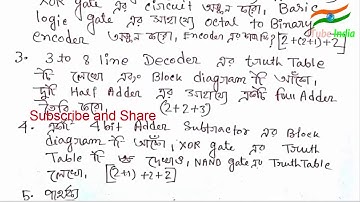 XOR gate এর circuit অঙ্কন করো, Basic
logic gate এর সাহায্যে Octal to Binary
encoder অঙ্কন করো, Encoder এর [2+(2+1)+2]
Tube India
3. 3 to 8 line Decoder এর truth Table
টি লেখো এবং Block diagram টি আঁকো,
দুটি Half Adder এর সাহায্যে একটি full Adder
তৈরি করো. (2+2+3)
Subscribe and Share
4. একটি 4 bit Adder Subtractor এর Block
diagram টি আঁকো, XOR gate এর Truth
Table টি দেখাও, NAND gate এর Truth Table
লেখো, [(2+1)+2+2]
5. পার্থক্য